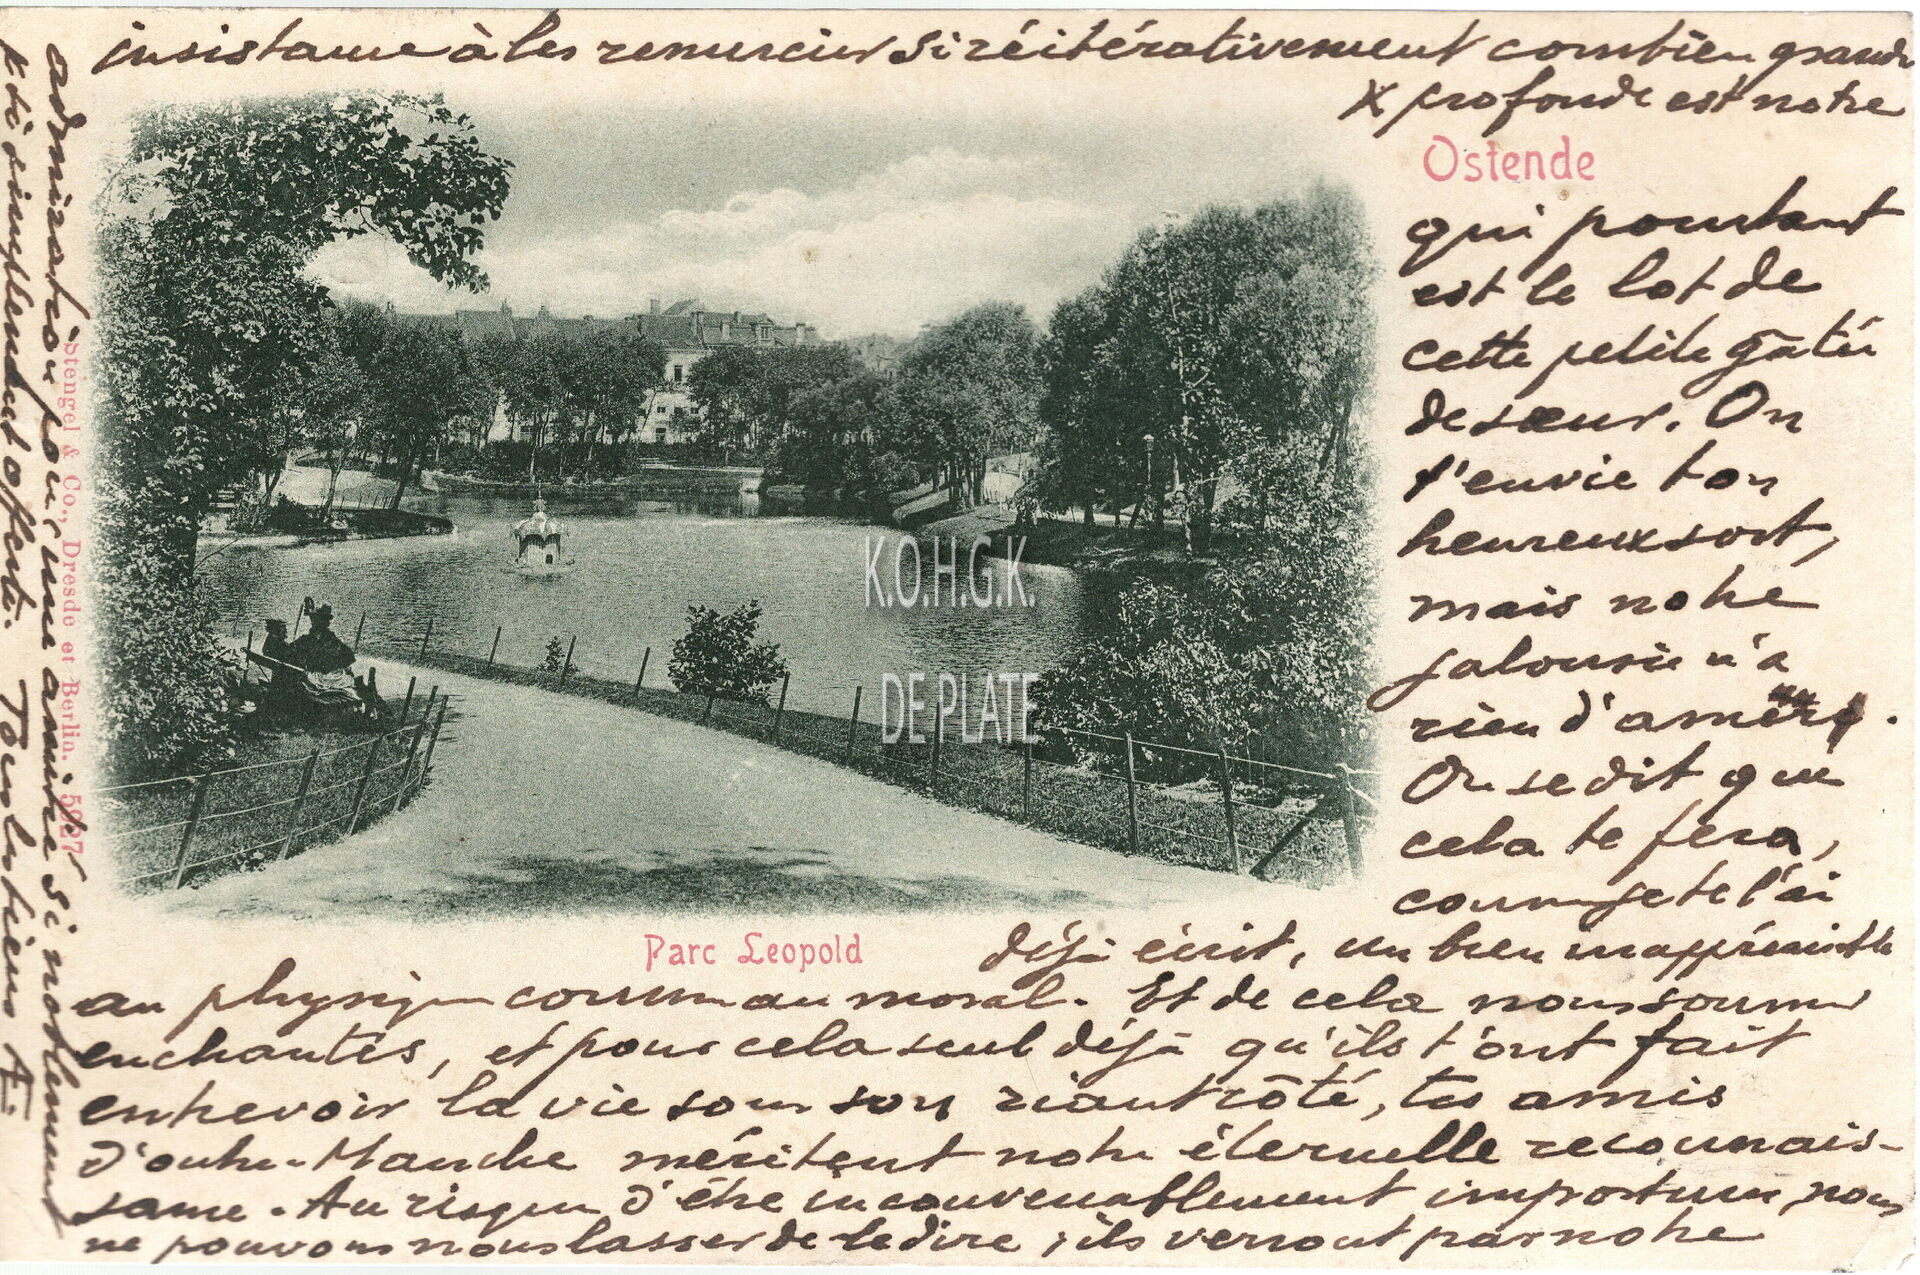 Ostende
qui pourtant
est le lot de
cette petite gâtée
de sœur. On
t'envie ton
heureux sort,
mais notre
jalousie n'a
rien d'amère.
On se dit que
cela te fera,
comme je te l'ai
déjà écrit, un bien inappréciable
au physique comme au moral. Et de cela nous sommes
enchantés, et pour cela seul déjà qu'ils t'ont fait
entrevoir la vie sous son riant côté, tes amis
d'outre-Manche méritent notre éternelle reconnais-
sance. Au risque d'être inconvenablement importuns, nous
ne pouvons nous lasser de le dire ; ils verront par notre
insistance à les remercier si réitérativement combien grande
& profonde est notre
admiration pour une amitié si noblement
& si simplement offerte. Tout
Parc Leopold
Stengel & Co., Dresde et Berlin. 5927
K.O.H.G.K.
DE PLATE